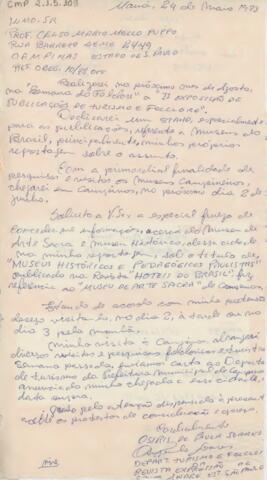 CMP 2.1.5.309
Mauá, 24 de Maio 1973
ILMO. SR
PROF. CELSO MARIA MELLO PUPPO
CAMPINAS ESTADO DE S. PAULO
Realizarei no próximo mes de Agosto,
na "Semana do Folclore" a "II EXPOSIÇÃO DE
PUBLICAÇÃO DE TURISMO E FOLCLORE".
Dedicarei um STAND, especialmente
para as publicações, referente a Museus do
Brasil, principalmente, minhas próprias
reportagem sobre o assunto.
Com a primordial finalidade de
pesquisas e visitas os Museus Campineiros,
chegarei em Campinas, no próximo dia 2 de
junho.
Solicito a V.Sa. a especial fineza de
conceder-me informações, acerca do Museu de
Arte Sacra e Museu Histórico, dessa cidade
na minha reportagem, sob o título de
"MUSEUS HISTÓRICOS E PEDAGÓGICOS PAULISTAS"
publicado na Revista "HOTEIS DO BRASIL", fiz
referencia ao "MUSEU DE ARTE SACRA" de Campinas.
Estando de acordo com minha
visita no dia 2, à tarde ou no
dia 3 pela manhã.
Minha visita à Campinas
diversas visitas e pesquisas folclóricas
Semana passada, enviamos carta ao Depart.
de turismo da Prefeitura Municipal de Campinas
anunciando minha chegada a essa cidade,
Grato pela atenção dispensada à presente
protestos de consideração e apreço.
Cordialmente
DEPART. TURISMO E FOLCLORE
REVISTA EXPOSIÇÃO
SANTO ANDRÉ EST. SÃO PAULO